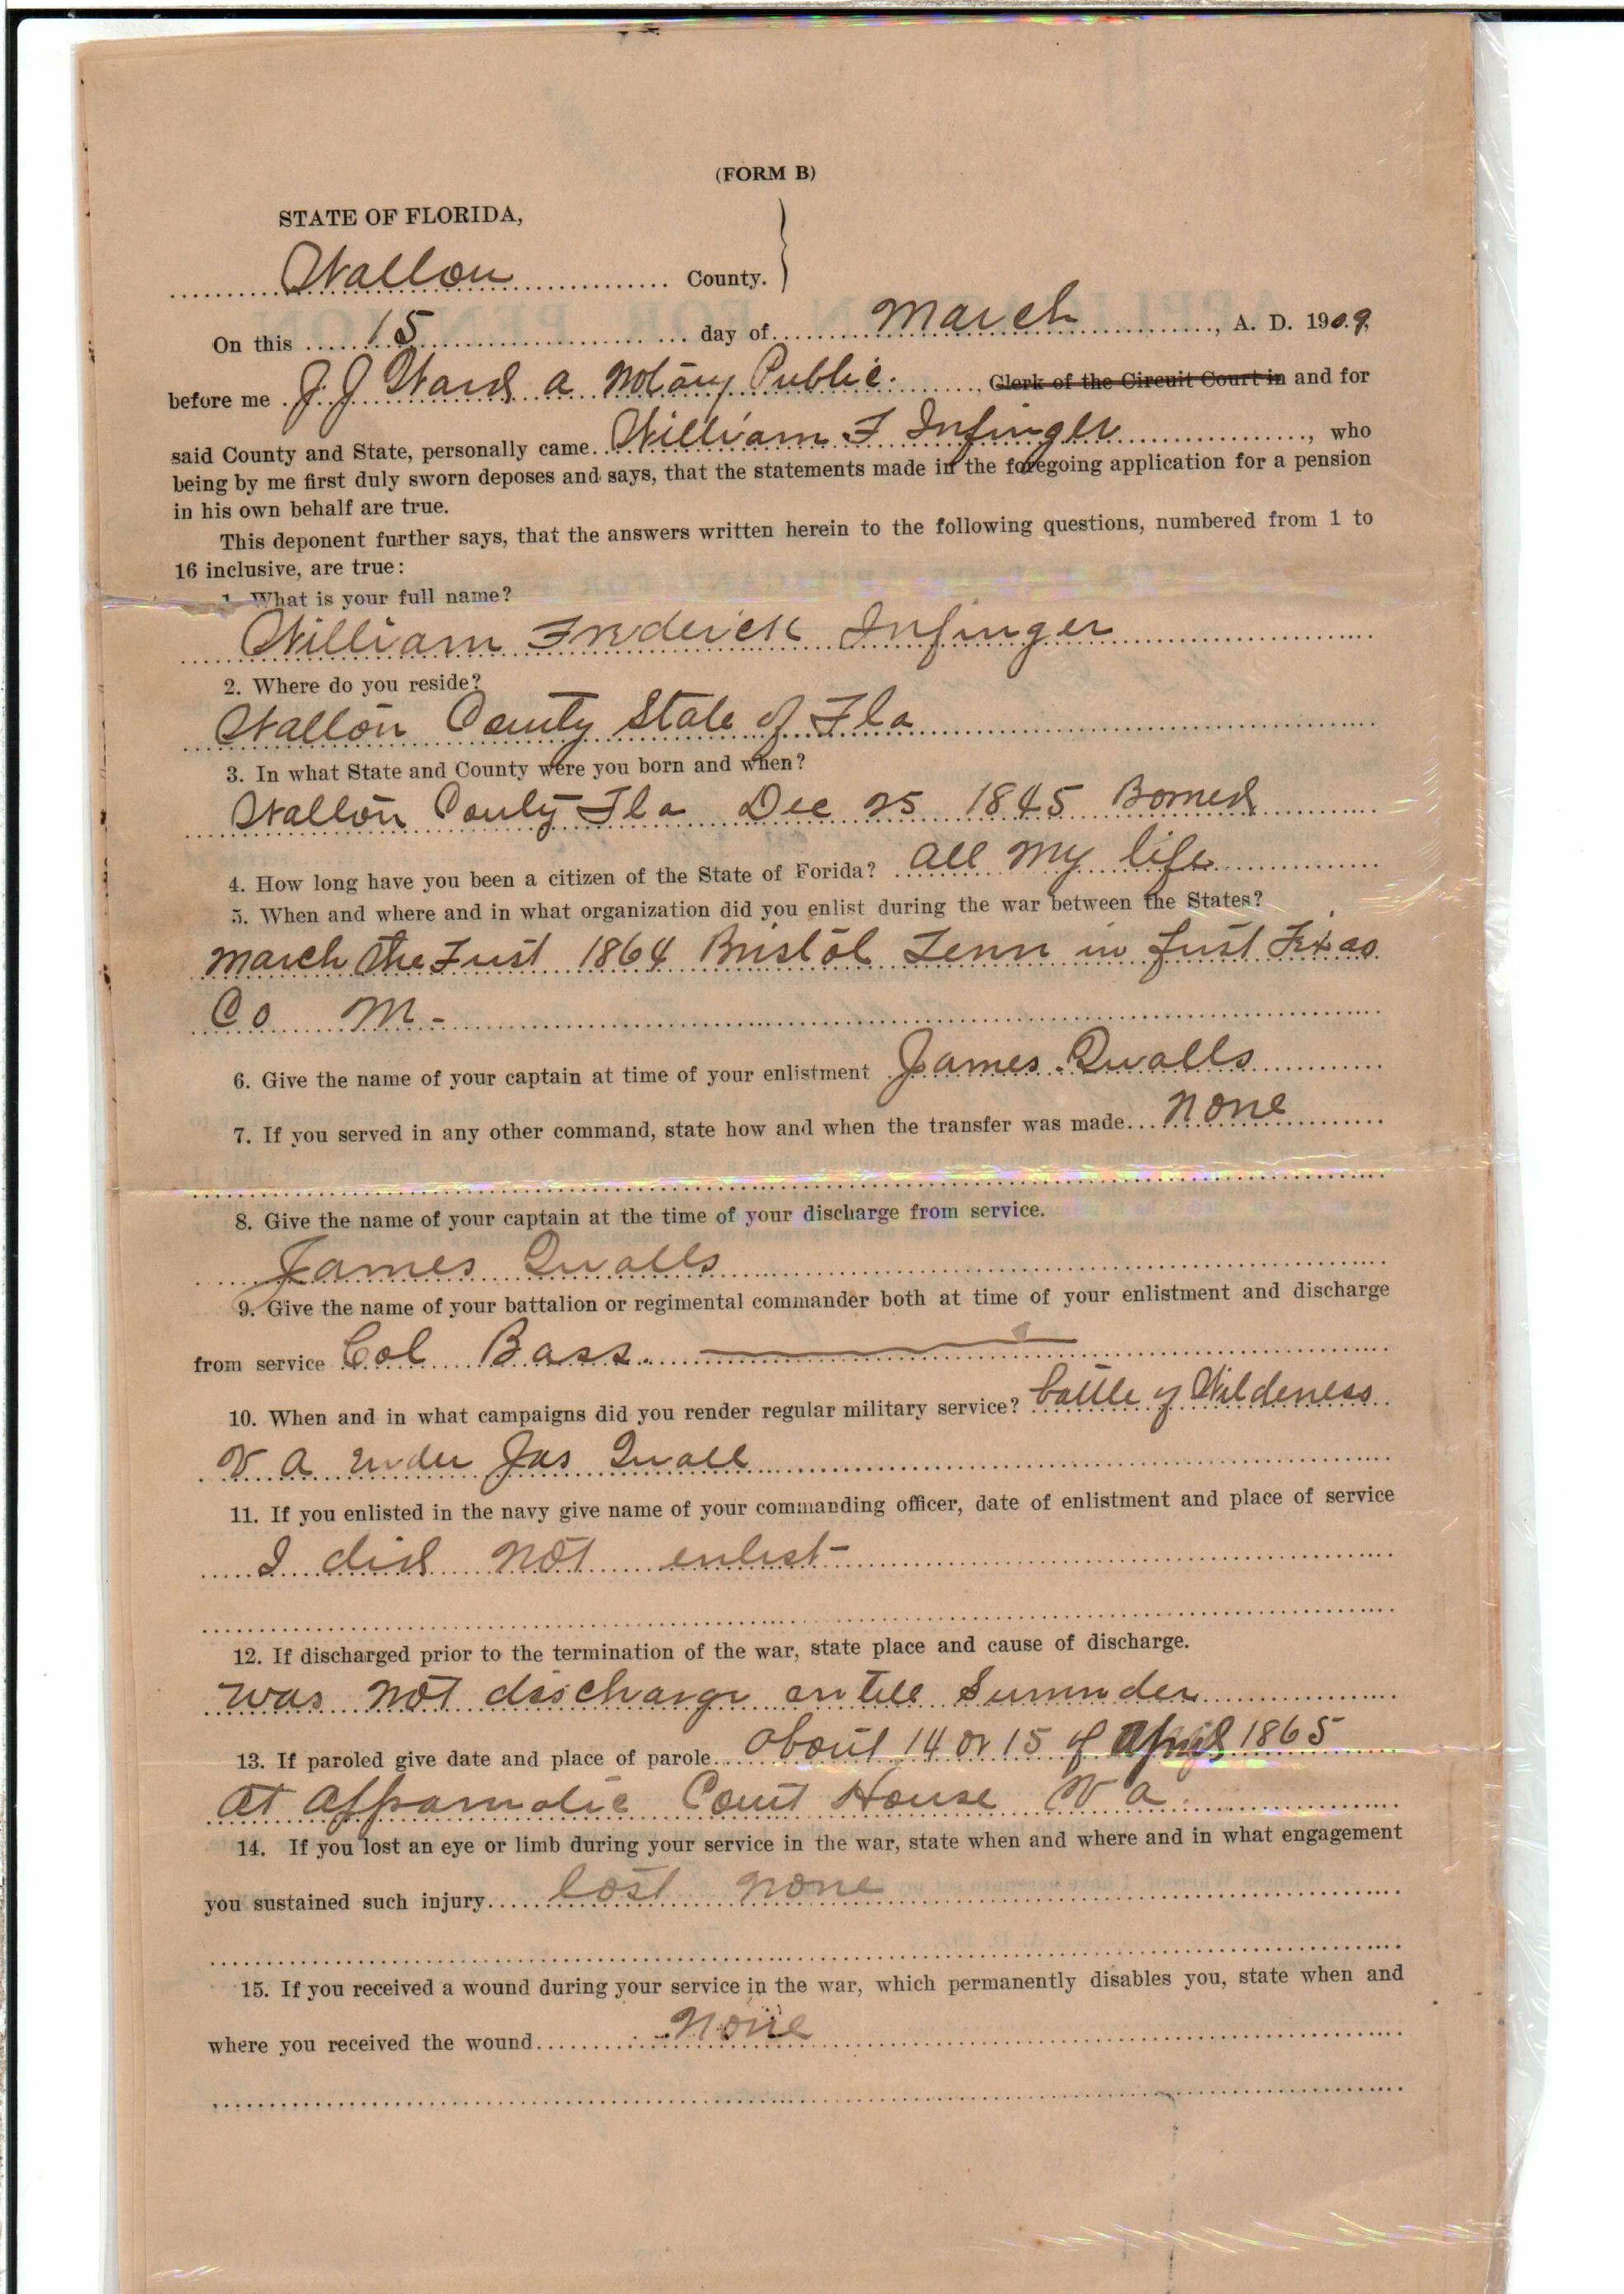 (FORM B)
STATE OF FLORIDA,
Walton County.
On this 15 day of March, A. D. 1909,
before me J. J Ward a Notary Public. Clerk of the Circuit Court in and for
said County and State, personally came William F Infinger, who
being by me first duly sworn deposes and says, that the statements made in the foregoing application for a pension
in his own behalf are true.
This deponent further says, that the answers written herein to the following questions, numbered from 1 to
16 inclusive, are true:
1. What is your full name?
William Frederick Infinger
2. Where do you reside?
Walton County State of Fla
3. In what State and County were you born and when?
Walton Conty Fla Dec 25 1845 Borned
4. How long have you been a citizen of the State of Forida? all my life
5. When and where and in what organization did you enlist during the war between the States?
march the First 1864 Bristol Tenn in first Texas
Co M -
6. Give the name of your captain at time of your enlistment James Qualls
7. If you served in any other command, state how and when the transfer was made... none
8. Give the name of your captain at the time of your discharge from service.
James Qualls
9. Give the name of your battalion or regimental commander both at time of your enlistment and discharge
from service Col Bass.
10. When and in what campaigns did you render regular military service? battle of Wilderness
V a under Jas Quall
11. If you enlisted in the navy give name of your commanding officer, date of enlistment and place of service
I did not enlist
12. If discharged prior to the termination of the war, state place and cause of discharge.
was not discharge until Surrender
13. If paroled give date and place of parole... about 14 or 15 of April 1865
at Appamatic Court House V a
14. If you lost an eye or limb during your service in the war, state when and where and in what engagement
you sustained such injury... lost none
15. If you received a wound during your service in the war, which permanently disables you, state when and
where you received the wound... none